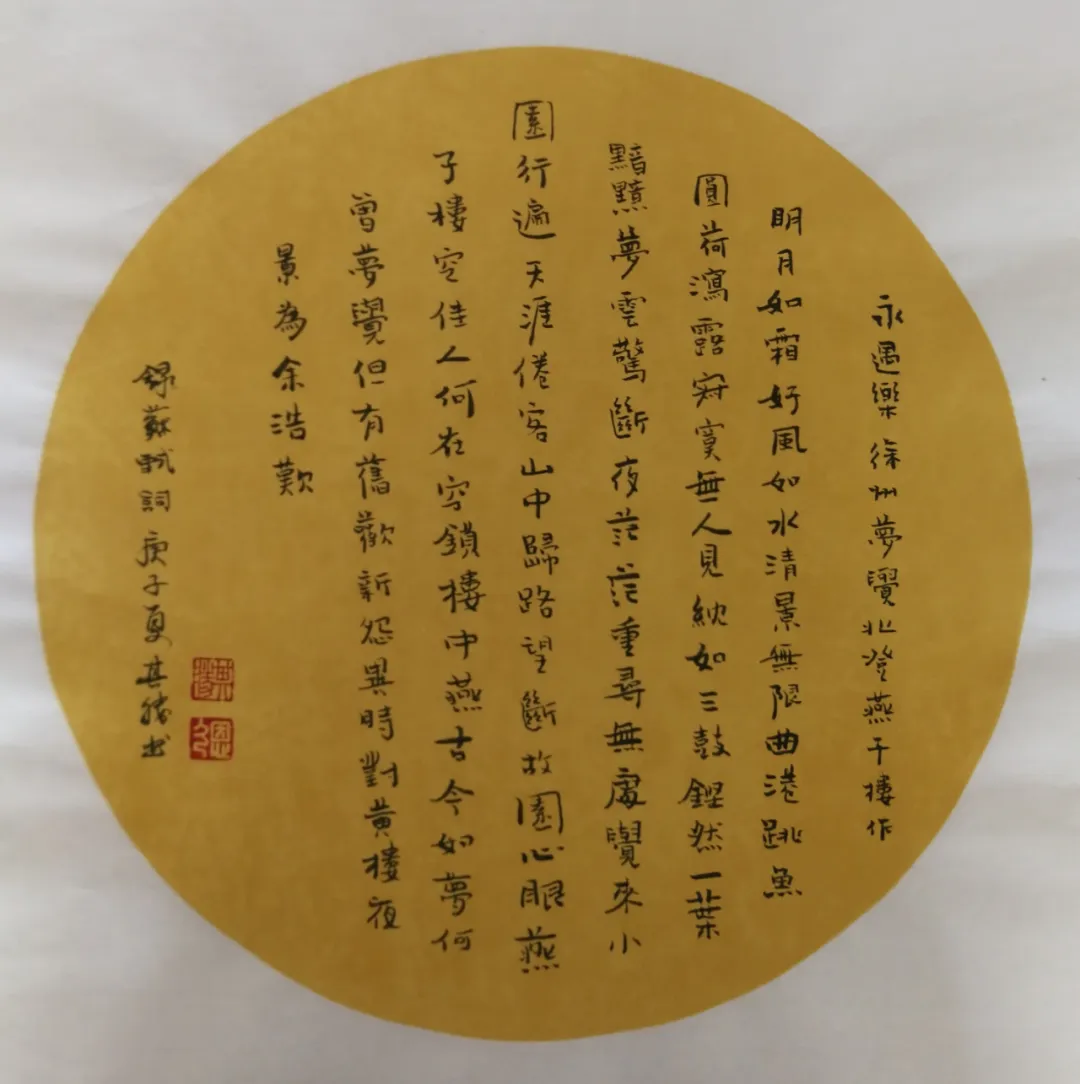 永遇樂徐州夢覺北登燕子樓作
明月如霜好風如水清景無限曲港跳魚
圓荷瀉露寂寞無人見紞如三鼓鏗然一葉
黯黯夢雲驚斷夜茫茫重尋無處覺來小
園行遍天涯倦客山中歸路望斷故園心眼燕
子樓空佳人何在空鎖樓中燕古今如夢何
曾夢覺但有舊歡新怨異時對黃樓夜
景為余浩歎
錄蘇軾詞庚子夏其勝书